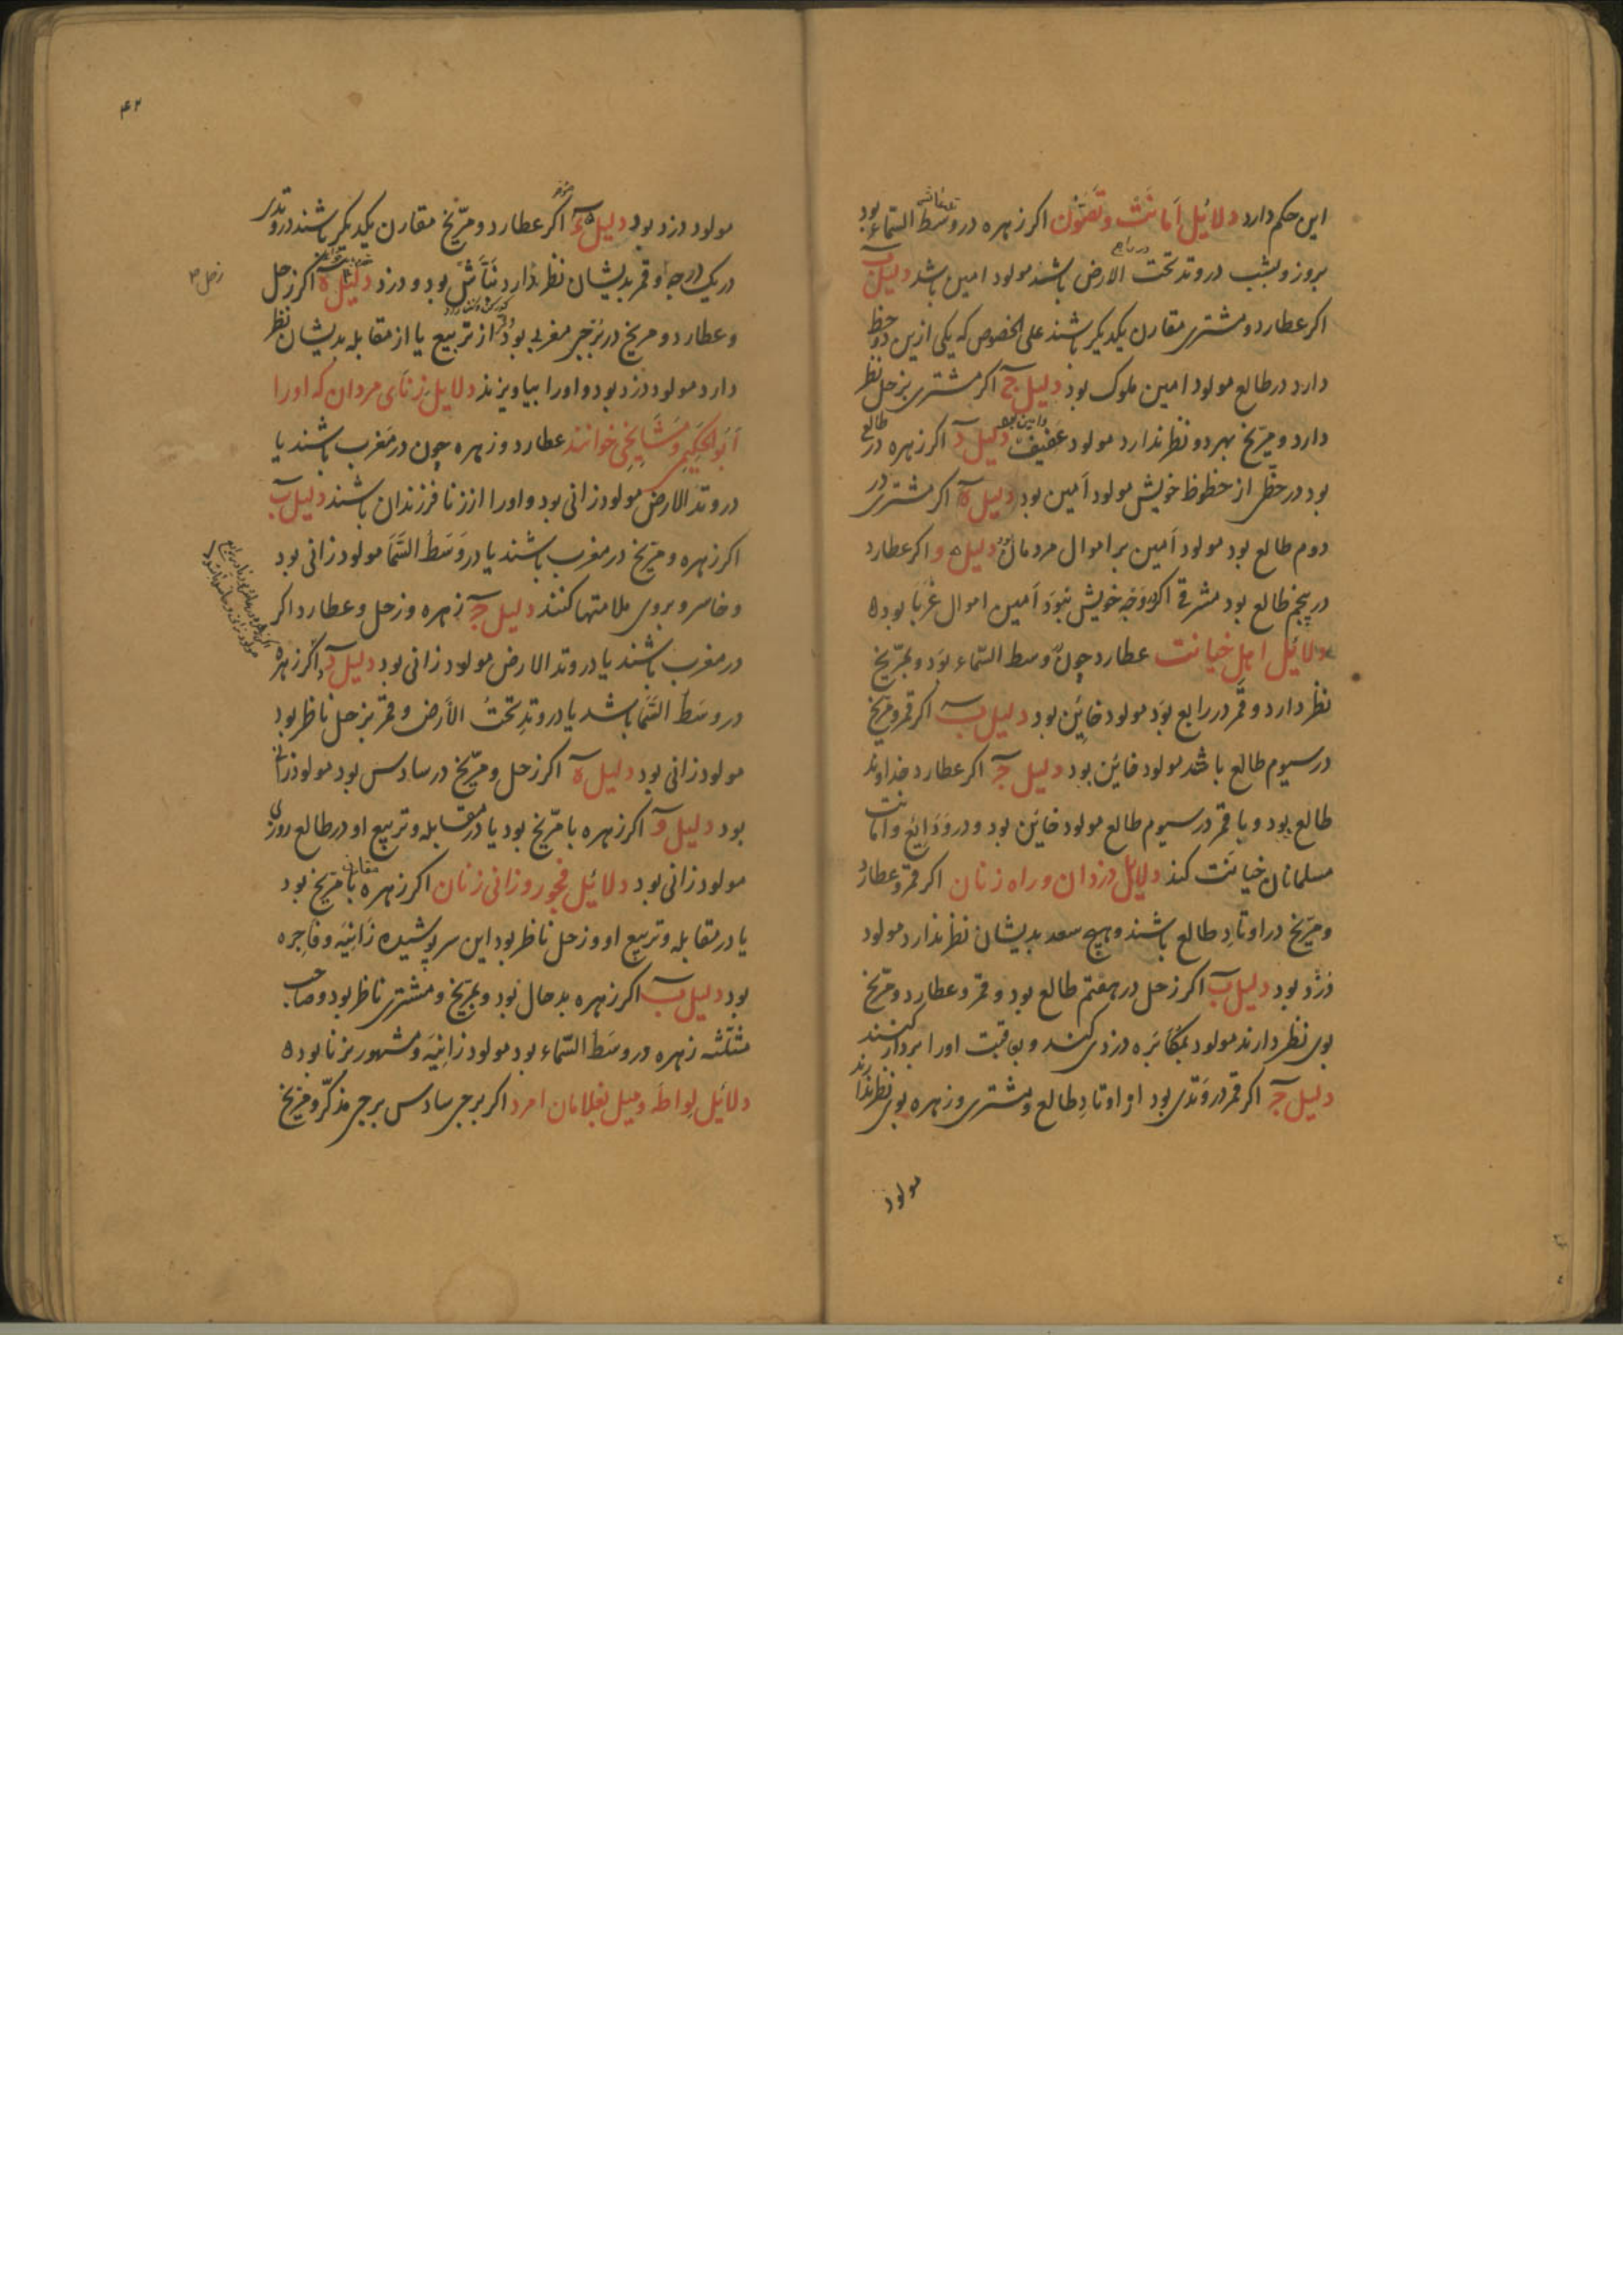 این حکم دارد دلائل امانت وتصون اکر زهره در وسط السماء بود
بروز وبشب در وتد تحت الارض باشد مولود امین باشد دلیل ب
اکر عطارد ومشتری مقارن یکدیکر باشند علی الخصوص که یکی ازین دو حظ
دارد در طالع مولود امین ملوک بود دلیل ج اکر مشتری بزحل نظر
دارد ومریخ بهر دو نظر ندارد مولود عفیف دلیل د اکر زهره در طالع
بود در حظی از حظوظ خویش مولود امین بود دلیل ه اکر مشتری در
دوم طالع بود مولود امین بر اموال مردمان دلیل و اکر عطارد
در پنجم طالع بود مشرقی اکر وجه خویش نبود امین اموال غربا بود
دلائل اهل خیانت عطارد چون وسط السماء بود وبمریخ
نظر دارد وقمر در رابع بود مولود خاین بود دلیل ب اکر قمر ومریخ
در سیوم طالع باشد مولود خاین بود دلیل ج اکر عطارد خداوند
طالع بود وبا قمر در سیوم طالع مولود خاین بود ودر ودایع وامانت
مسلمانان خیانت کند دلایل دزدان وراه زنان اکر قمر وعطارد
ومریخ در اوتاد طالع باشند وهیچ سعد بدیشان نظر ندارد مولود
دزد بود دلیل ب اکر زحل در هفتم طالع بود وقمر وعطارد ومریخ
بوی نظر دارند مولود بمکابره دزدی کند وبعاقبت اورا بردار کنند
دلیل ج اکر قمر در وتدی بود از اوتاد طالع ومشتری وزهره بوی نظر ندارند
مولود
۴۲
مولود دزد بود دلیل ء اکر عطارد ومریخ مقارن یکدیکر باشند در وتدی
در یک درجه وقمر بدیشان نظر دارد نباش بود ودزد دلیل ه اکر زحل
وعطارد ومریخ در برجی مغربی بود از تربیع یا از مقابله بدیشان نظر
دارد مولود دزد بود واورا بیاویزند دلایل زنای مردان که اورا
خوانند عطارد وزهره چون در مغرب باشند یا
در وتد الارض مولود زانی بود واورا از زنا فرزندان باشند دلیل ب
اکر زهره ومریخ در مغرب باشند یا در وسط السما مولود زانی بود
وخاسر وبروی ملامتها کنند دلیل ج زهره وزحل وعطارد اکر
در مغرب باشند یا در وتد الارض مولود زانی بود دلیل د اکر زهره
در وسط السما باشد یا در وتد تحت الارض وقمر بزحل ناظر بود
مولود زانی بود دلیل ه اکر زحل ومریخ در سادس بود مولود زانی
بود دلیل و اکر زهره با مریخ بود یا در مقابله وتربیع او در طالع روزی
مولود زانی بود دلائل فجور وزانی زنان اکر زهره با مریخ بود
یا در مقابله وتربیع او وزحل ناظر بود این سر پوشیده زانیه وفاجره
بود دلیل ب اکر زهره بد حال بود وبمریخ ومشتری ناظر بود وصاحب
مثلثه زهره در وسط السماء بود مولود زانیه ومشهور بزنا بود
دلائل لواطه ومیل بغلامان امرد اکر برجی سادس برجی مذکر ومریخ